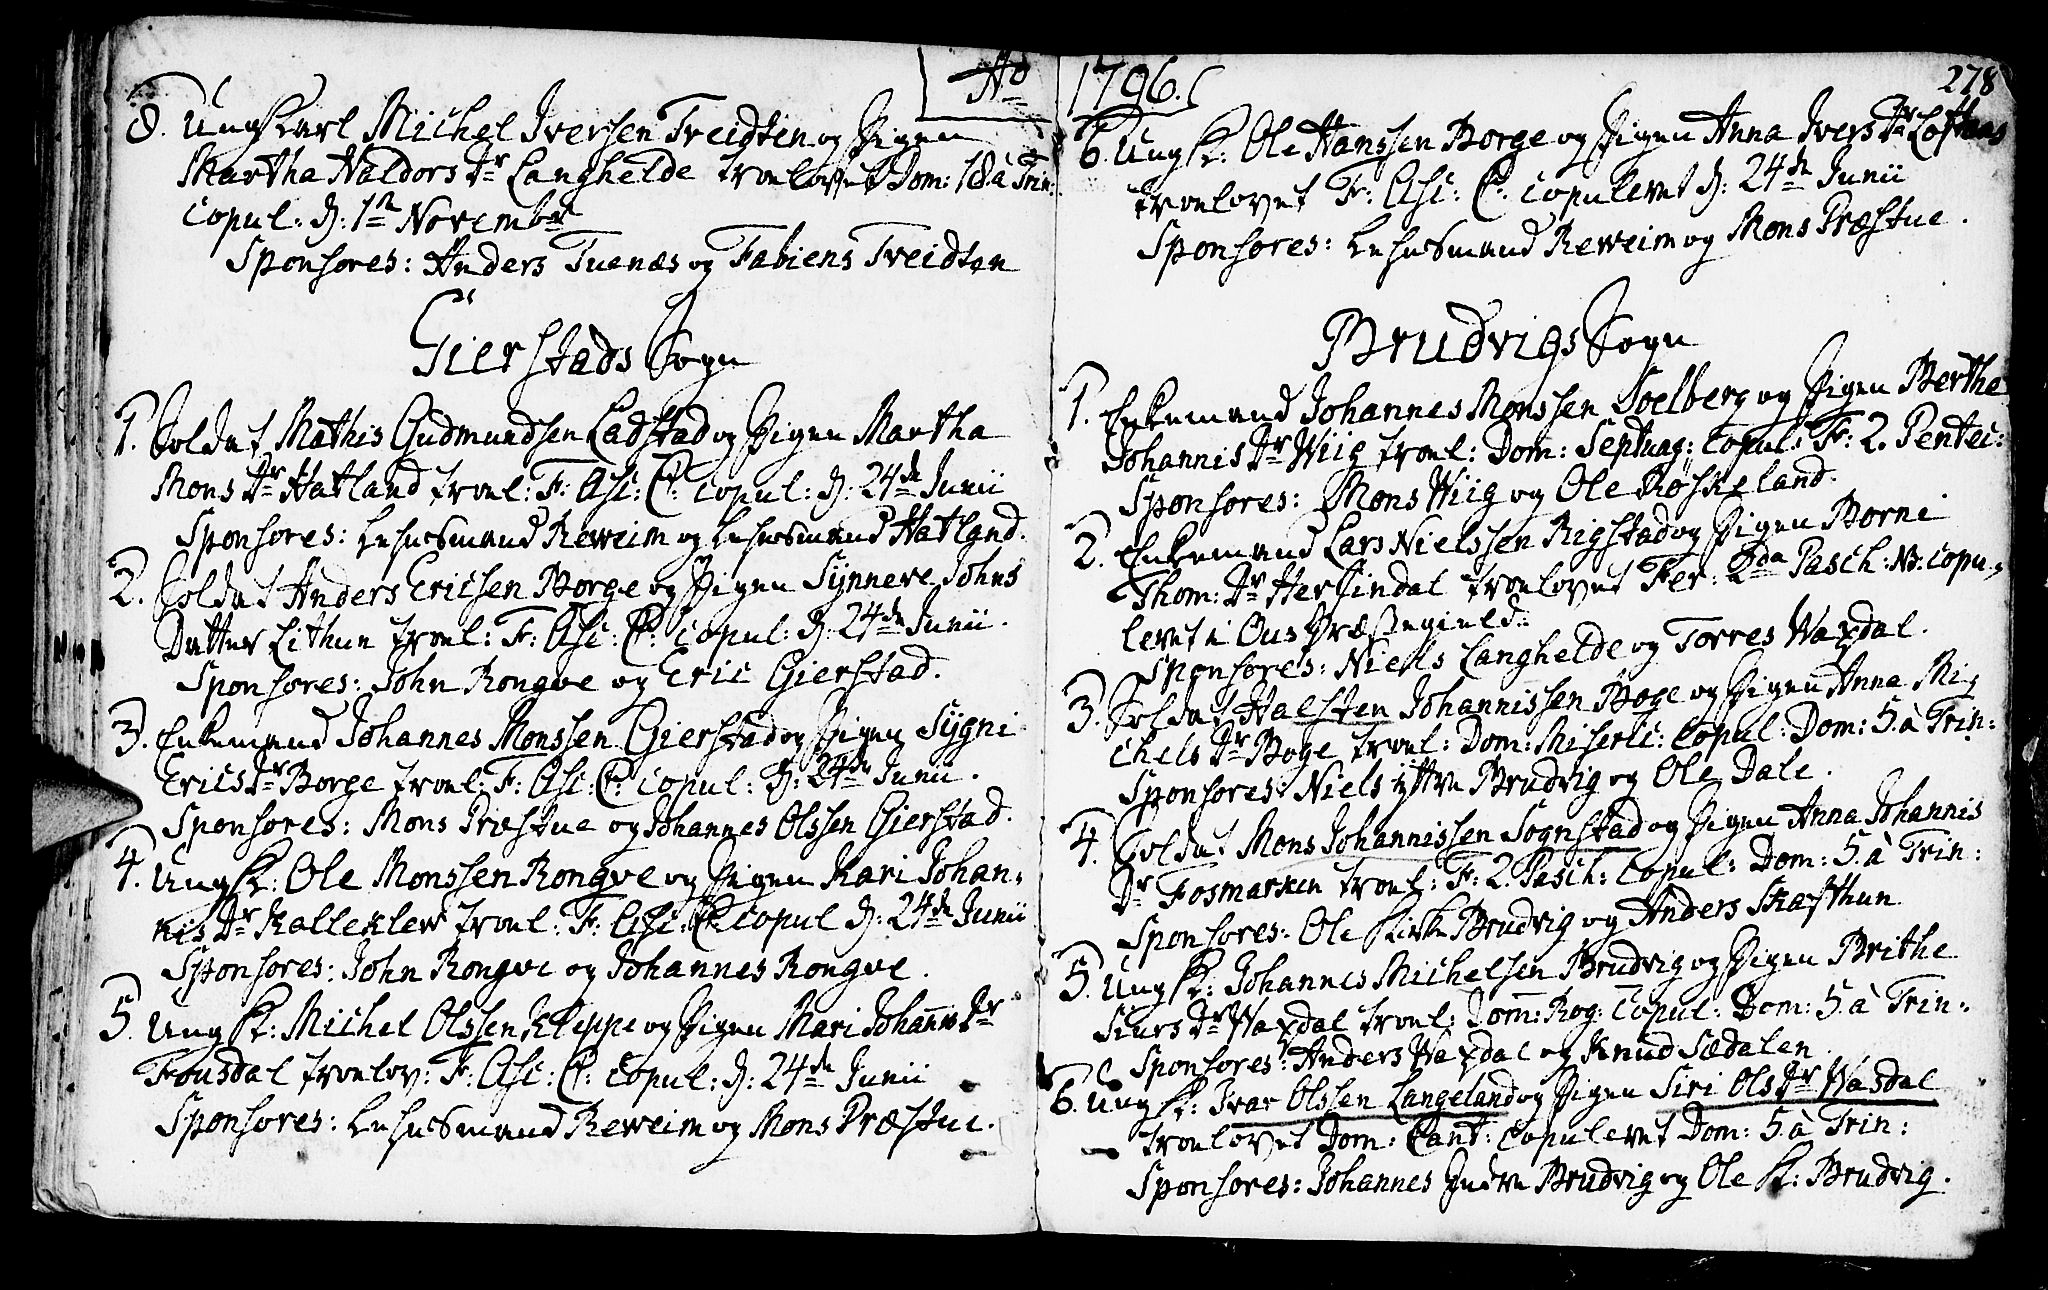 Ao
8. Ungkarl Michel Iversen Treidten og Pigen
Martha Haldors Dr Langhelde troelovet Dom: 18. à Trin:
copul: d: 1te Novembr
Sponsores: Anders Tuenæs og Fabiens Treidten
Gierstads Sogn
1. Soldat Mathis Gudmundsen Ladstad og Pigen Martha
Mons Dr Hatland troel: F: Asc: C: copul: d: 24de Junii
Sponsores: Lehnsmand Reweim og Lehnsmand Hatland.
2. Soldat Anders Ericsen Borge og Pigen Synneve Johns
Datter Lithun troel: F: Asc: C: copul: d: 24de Junii.
Sponsores: John Rongve og Eric Gierstad.
3. Enkemand Johannes Monssen Gierstad og Pigen Sygni
Erics Dr Borge troel: F: Asc: C: copul: d: 24de Junii.
Sponsores: Mons Præstue og Johannes Olssen Gierstad.
4. Ungk: Ole Monssen Rongve og Pigen Kari Johan-
nis Dr Kalleklev troel: F: Asc: C: copul d: 24de Junii
Sponsores: John Rongve og Johannes Rongve.
5. Ungk: Michel Olssen Kleppe og Pigen Mari Johannis Dr
Fousdal troelov: F: Asc: C: copul: d: 24de Junii
Sponsores: Lehnsmand Reweim og Mons Præstue.
1796.
278
6. Ungk: Ole Hanssen Borge og Pigen Anna Ivers Dr Lofthaas
troelovet F: Asc: C: copulevet d: 24de Junii
Sponsores: Lehnsmand Reweim og Mons Præstue.
Brudvigs Sogn
1. Enkemand Johannes Monssen Soelberg og Pigen Berthe
Johannis Dr Wiig troel: Dom: Septuag: Copul: F: 2. Pentec:
Sponsores: Mons Wiig og Ole Røskeland.
2. Enkemand Lars Nielssen Rigstad og Pigen Borni
Thom: Dr Hersindal troelovet Fer: 2da Pasch: NB. copu-
levet i Ous Præstegield.
Sponsores: Niels Langhelde og Torres Waxdal.
3. Soldat Halsten Johannissen Boge og Pigen Anna Mi-
chels Dr Boge troel: Dom: Miseric: Copul: Dom: 5. à Trin:
Sponsores: Niels ijttre Brudvig og Ole Dale.
4. Soldat Mons Johannissen Sognstad og Pigen Anna Johannis
Dr Fosmarken troel: F: 2. Pasch: Copul: Dom: 5. à Trin:
Sponsores: Ole Kirke Brudvig og Anders Skafthun
5. Ungk: Johannes Michelsen Brudvig og Pigen Brithe
Siurs Dr Waxdal troel: Dom: Rog: Copul: Dom: 5. à Trin:
Sponsores: Anders Waxdal og Knud Sædalen
6. Ungk: Ivar Olssen Langeland og Pigen Siri Ols Dr Wasdal
troelovet Dom: Cant: Copulevet Dom: 5. à Trin:
Sponsores: Johannes Indre Brudvig og Ole K: Brudvig.